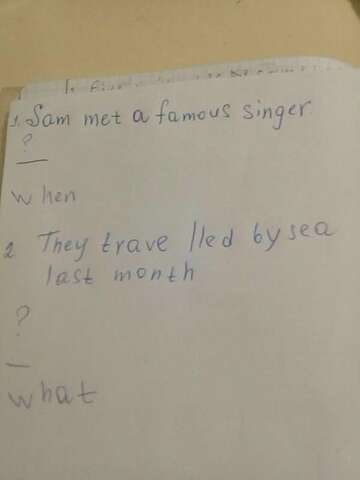 1. Sam met a famous singer.
?
—
when
2 They travelled by sea
last month
?
—
what